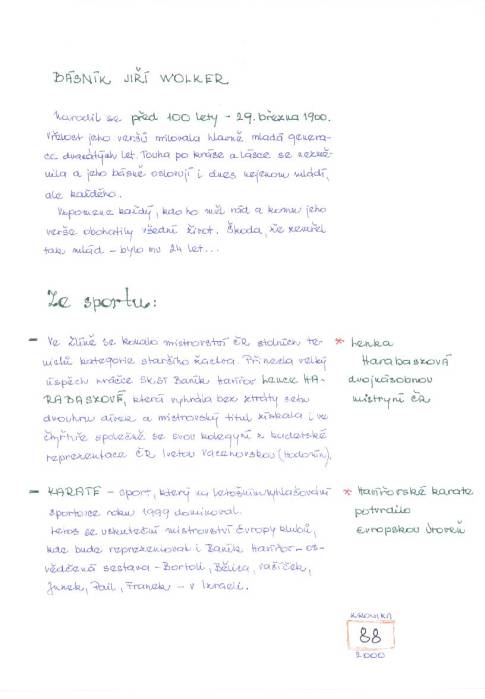 BÁSNÍK JIŘÍ WOLKER
Narodil se před 100 lety - 29. března 1900.
Vřelost jeho veršů milovala hlavně mladá genera-
ce dvacátých let. Touha po kráse a lásce se nezmě-
nila a jeho básně oslovují i dnes nejenom mládí,
ale každého.
Vzpomene každý, kdo ho měl rád a komu jeho
verše obohatily všední život. Škoda, že zemřel
tak mlád - bylo mu 24 let...
Ze sportu:
- Ve Zlíně se konalo mistrovství ČR stolních te-
nistů kategorie staršího žactva. Přinesla velký
úspěch hráčce SKST Baník Havířov LENCE HA-
RABASZOVÉ, která vyhrála bez ztráty setu
dvouhru dívek a mistrovský titul získala i ve
čtyřhře společně se svou kolegyní z kadetské
reprezentace ČR Ivetou Vacenovskou (Hodonín).
* Lenka
Harabaszová
dvojnásobnou
mistryní ČR
- KARATE - sport, který na letošním vyhlašování
sportovce roku 1999 dominoval.
Letos se uskuteční mistrovství Evropy klubů,
kde bude reprezentovat i Baník Havířov - os-
vědčená sestava - Bortoli, Bělica, Vašíček,
Junek, Pail, Franek - v Izraeli.
* Havířovské karate
potvrdilo
evropskou úroveň
KRONIKA
88
2000